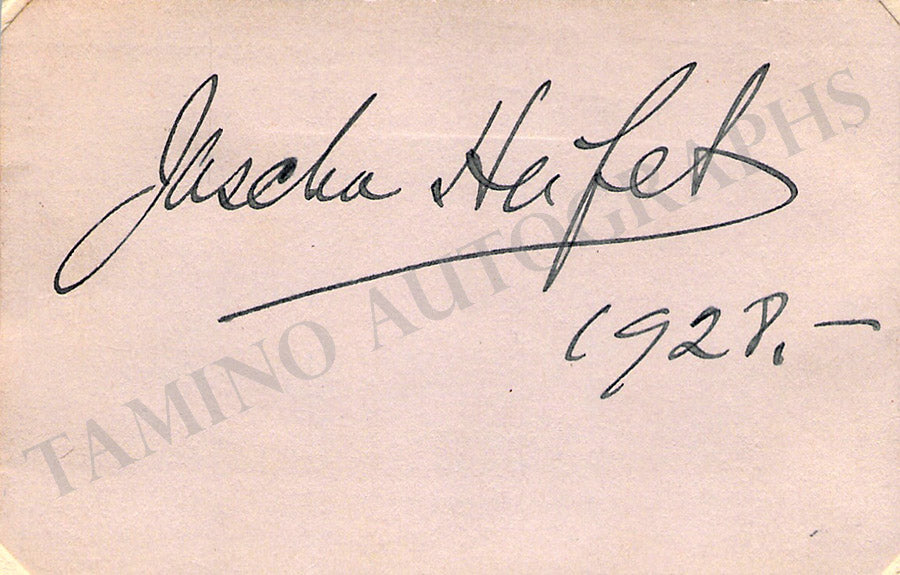 Jascha Heifetz
1928.–
TAMINO AUTOGRAPHS